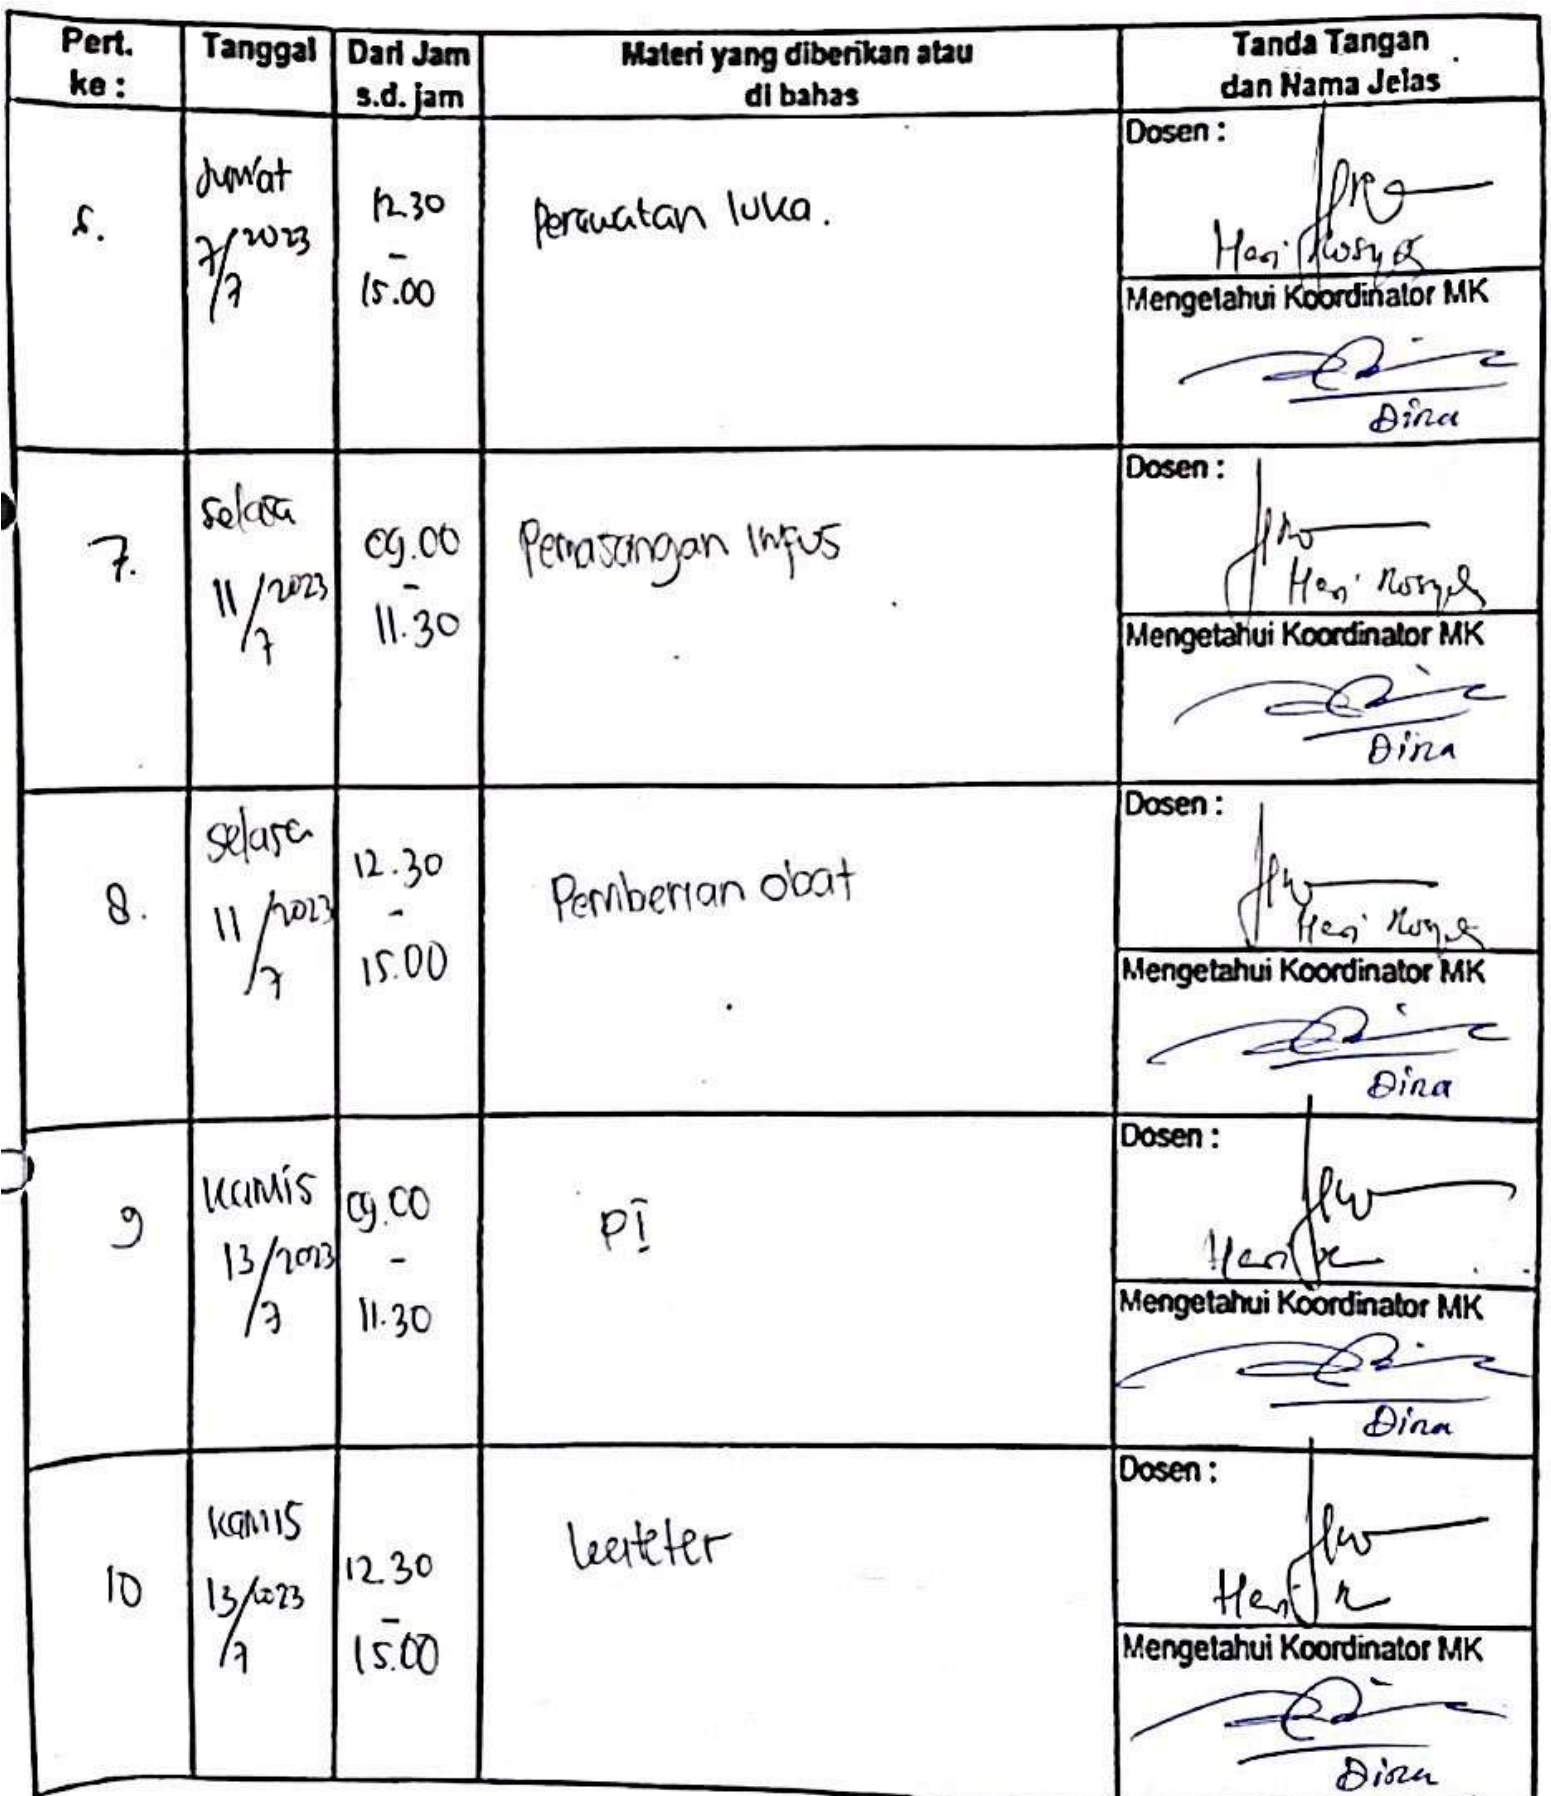 Pert. ke :
Tanggal
Dari Jam s.d. jam
Materi yang diberikan atau di bahas
Tanda Tangan dan Nama Jelas
Jum'at
7/7 2023
12.30
-
15.00
Perawatan luka.
Dosen :
Heri
Mengetahui Koordinator MK
Dina
7.
Selasa
11/7 2023
09.00
-
11.30
Pemasangan Infus
Dosen :
Heri
Mengetahui Koordinator MK
Dina
8.
Selasa
11/7 2023
12.30
-
15.00
Pemberian obat
Dosen :
Heri
Mengetahui Koordinator MK
Dina
9
Kamis
13/7 2023
09.00
-
11.30
PI
Dosen :
Heri
Mengetahui Koordinator MK
Dina
10
Kamis
13/7 2023
12.30
-
15.00
kateter
Dosen :
Heri
Mengetahui Koordinator MK
Dina